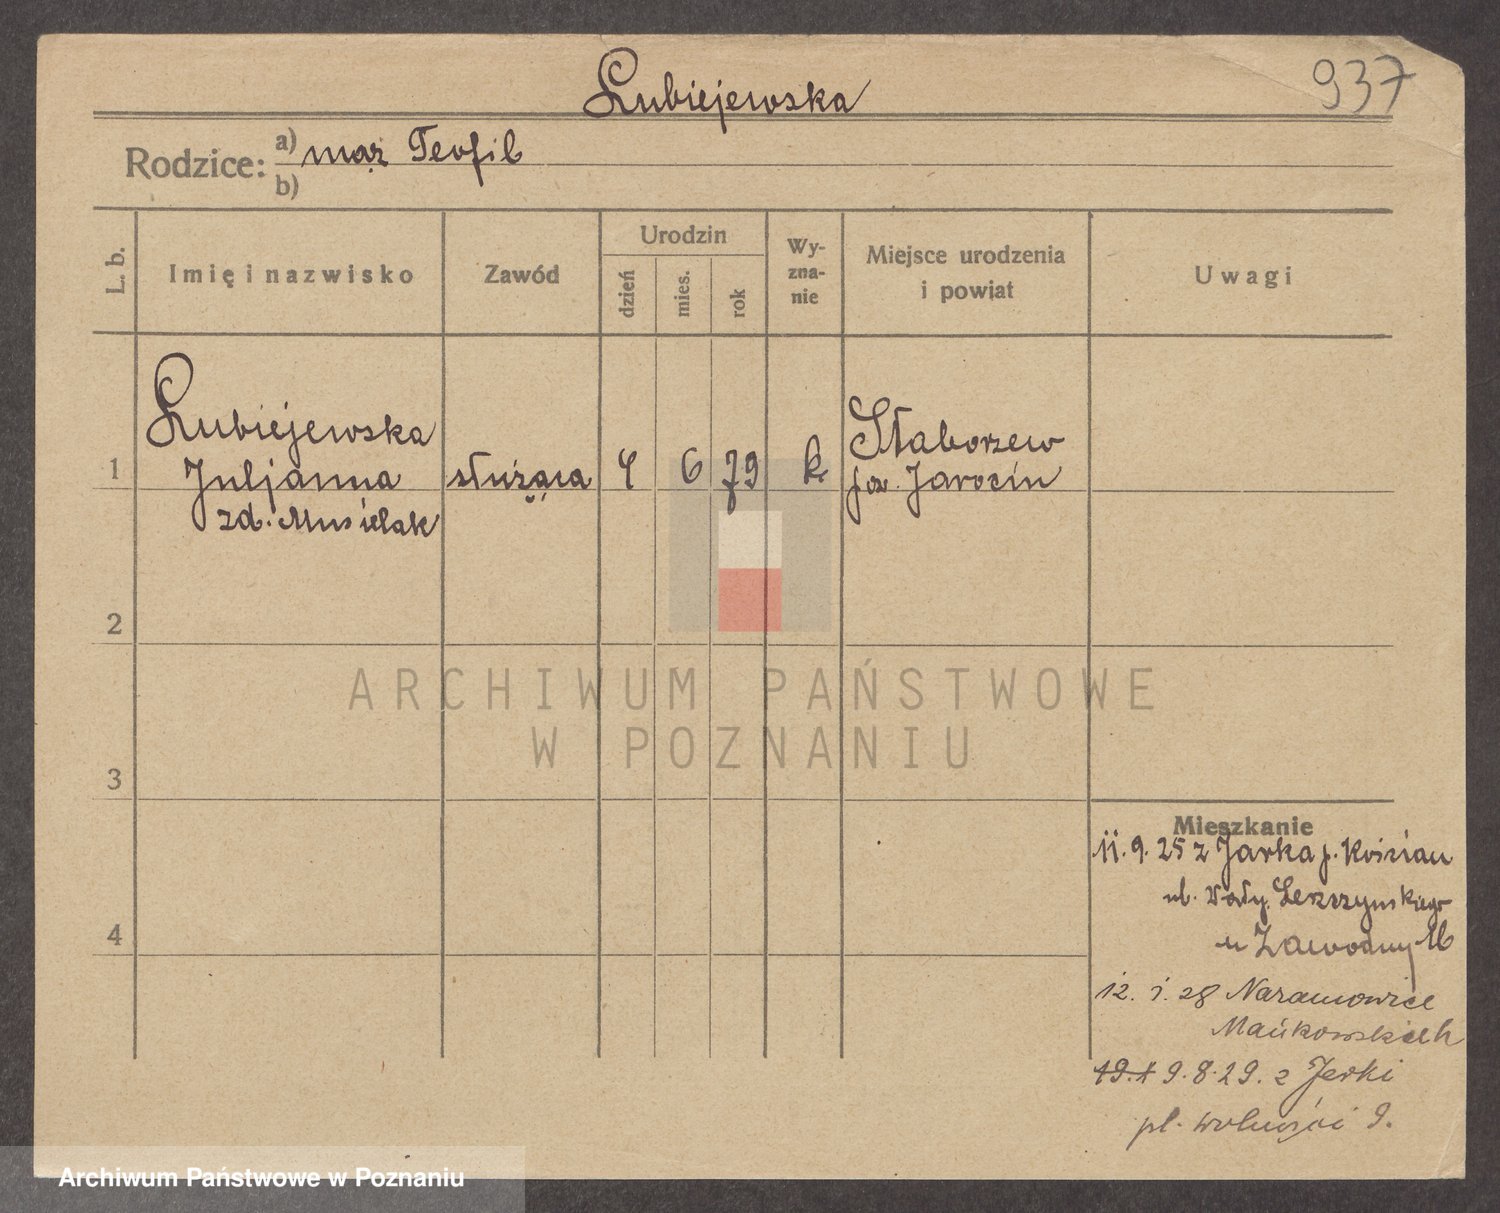 Łubiejewska
937
Rodzice: a) mąż Teofil
b)
L. b.
Imię i nazwisko
Zawód
Urodzin
dzień
mies.
rok
Wy-
zna-
nie
Miejsce urodzenia
i powiat
Uwagi
Łubiejewska
1 Juljanna służąca 4 6 79 k
zd. Musielak
Słaborzew
pow. Jarocin
2
3
4
ARCHIWUM PAŃSTWOWE
W POZNANIU
Mieszkanie
11. 9. 25 z Jarka p. Kościan
ul. Wały Leszczyńskiego
u Zawodny 16
12. 1. 28 Naramowice
Mańkowskich
19. 1 9. 8. 29. z Jerki
pl. wolności 9.
Archiwum Państwowe w Poznaniu